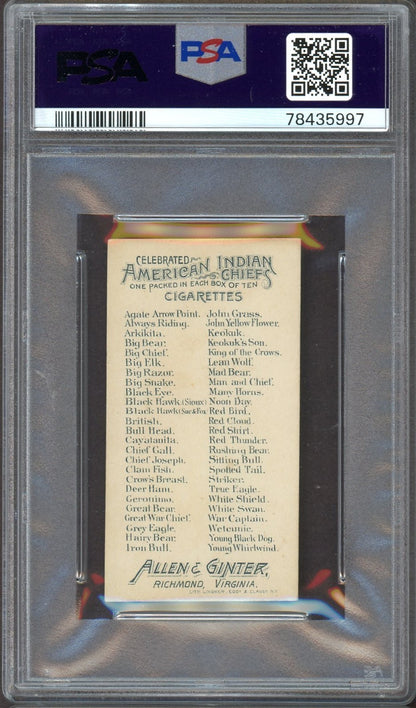 PSA
PSA
78435997
CELEBRATED
AMERICAN INDIAN
CHIEFS
ONE PACKED IN EACH BOX OF TEN
CIGARETTES
Agate Arrow Point. John Grass.
Always Riding. John Yellow Flower.
Arkikita. Keokuk.
Big Bear. Keokuk's Son.
Big Chief. King of the Crows.
Big Elk. Lean Wolf.
Big Razor. Mad Bear.
Big Snake. Man and Chief.
Black Eye. Many Horns.
Black Hawk (Sioux) Noon Day.
Black Hawk (Sac & Fox) Red Bird.
British. Red Cloud.
Bull Head. Red Shirt.
Cayatanita. Red Thunder.
Chief Gall. Rushing Bear.
Chief Joseph. Sitting Bull.
Clam Fish. Spotted Tail.
Crow's Breast. Striker.
Deer Ham. True Eagle.
Geronimo. White Shield.
Great Bear. White Swan.
Great War Chief. War Captain.
Grey Eagle. Wetcunie.
Hairy Bear. Young Black Dog.
Iron Bull. Young Whirlwind.
ALLEN & GINTER,
RICHMOND, VIRGINIA.
LITH. LINDNER, EDDY & CLAUSS N.Y.